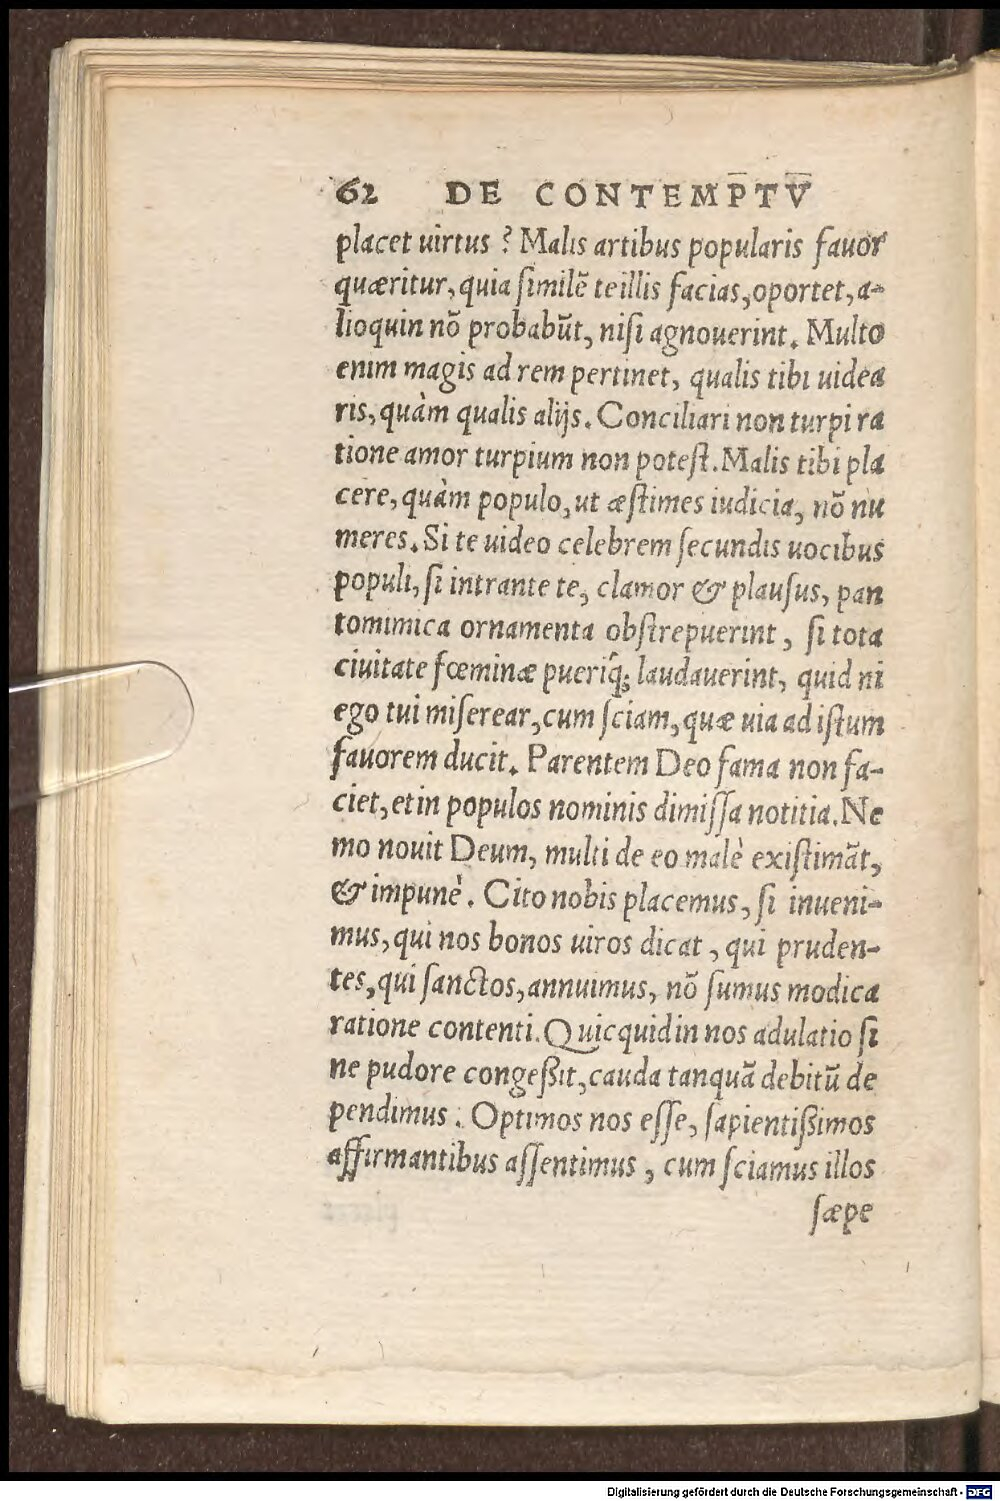 62 DE CONTEMP̄TV̄
placet uirtus? Malis artibus popularis fauor
quæritur, quia ſimilẽ te illis facias, oportet, a-
lioquin nõ probabũt, niſi agnouerint. Multo
enim magis ad rem pertinet, qualis tibi uidea
ris, quàm qualis alijs. Conciliari non turpi ra
tione amor turpium non poteſt. Malis tibi pla
cere, quàm populo, ut æſtimes iudicia, nõ nu
meres. Si te uideo celebrem ſecundis uocibus
populi, ſi intrante te, clamor & plauſus, pan
tomimica ornamenta obſtrepuerint, ſi tota
ciuitate fœminæ pueriq́; laudauerint, quid ni
ego tui miſerear, cum ſciam, quæ uia ad iſtum
fauorem ducit. Parentem Deo fama non fa-
ciet, et in populos nominis dimiſſa notitia. Ne
mo nouit Deum, multi de eo malè exiſtimãt,
& impunè. Cito nobis placemus, ſi inueni-
mus, qui nos bonos uiros dicat, qui pruden-
tes, qui ſanctos, annuimus, nõ ſumus modica
ratione contenti. Quicquid in nos adulatio ſi
ne pudore congeßit, cauda tanquã debitũ de
pendimus. Optimos nos eſſe, ſapientißimos
affirmantibus aſſentimus, cum ſciamus illos
ſæpe
Digitalisierung gefördert durch die Deutsche Forschungsgemeinschaft - DFG